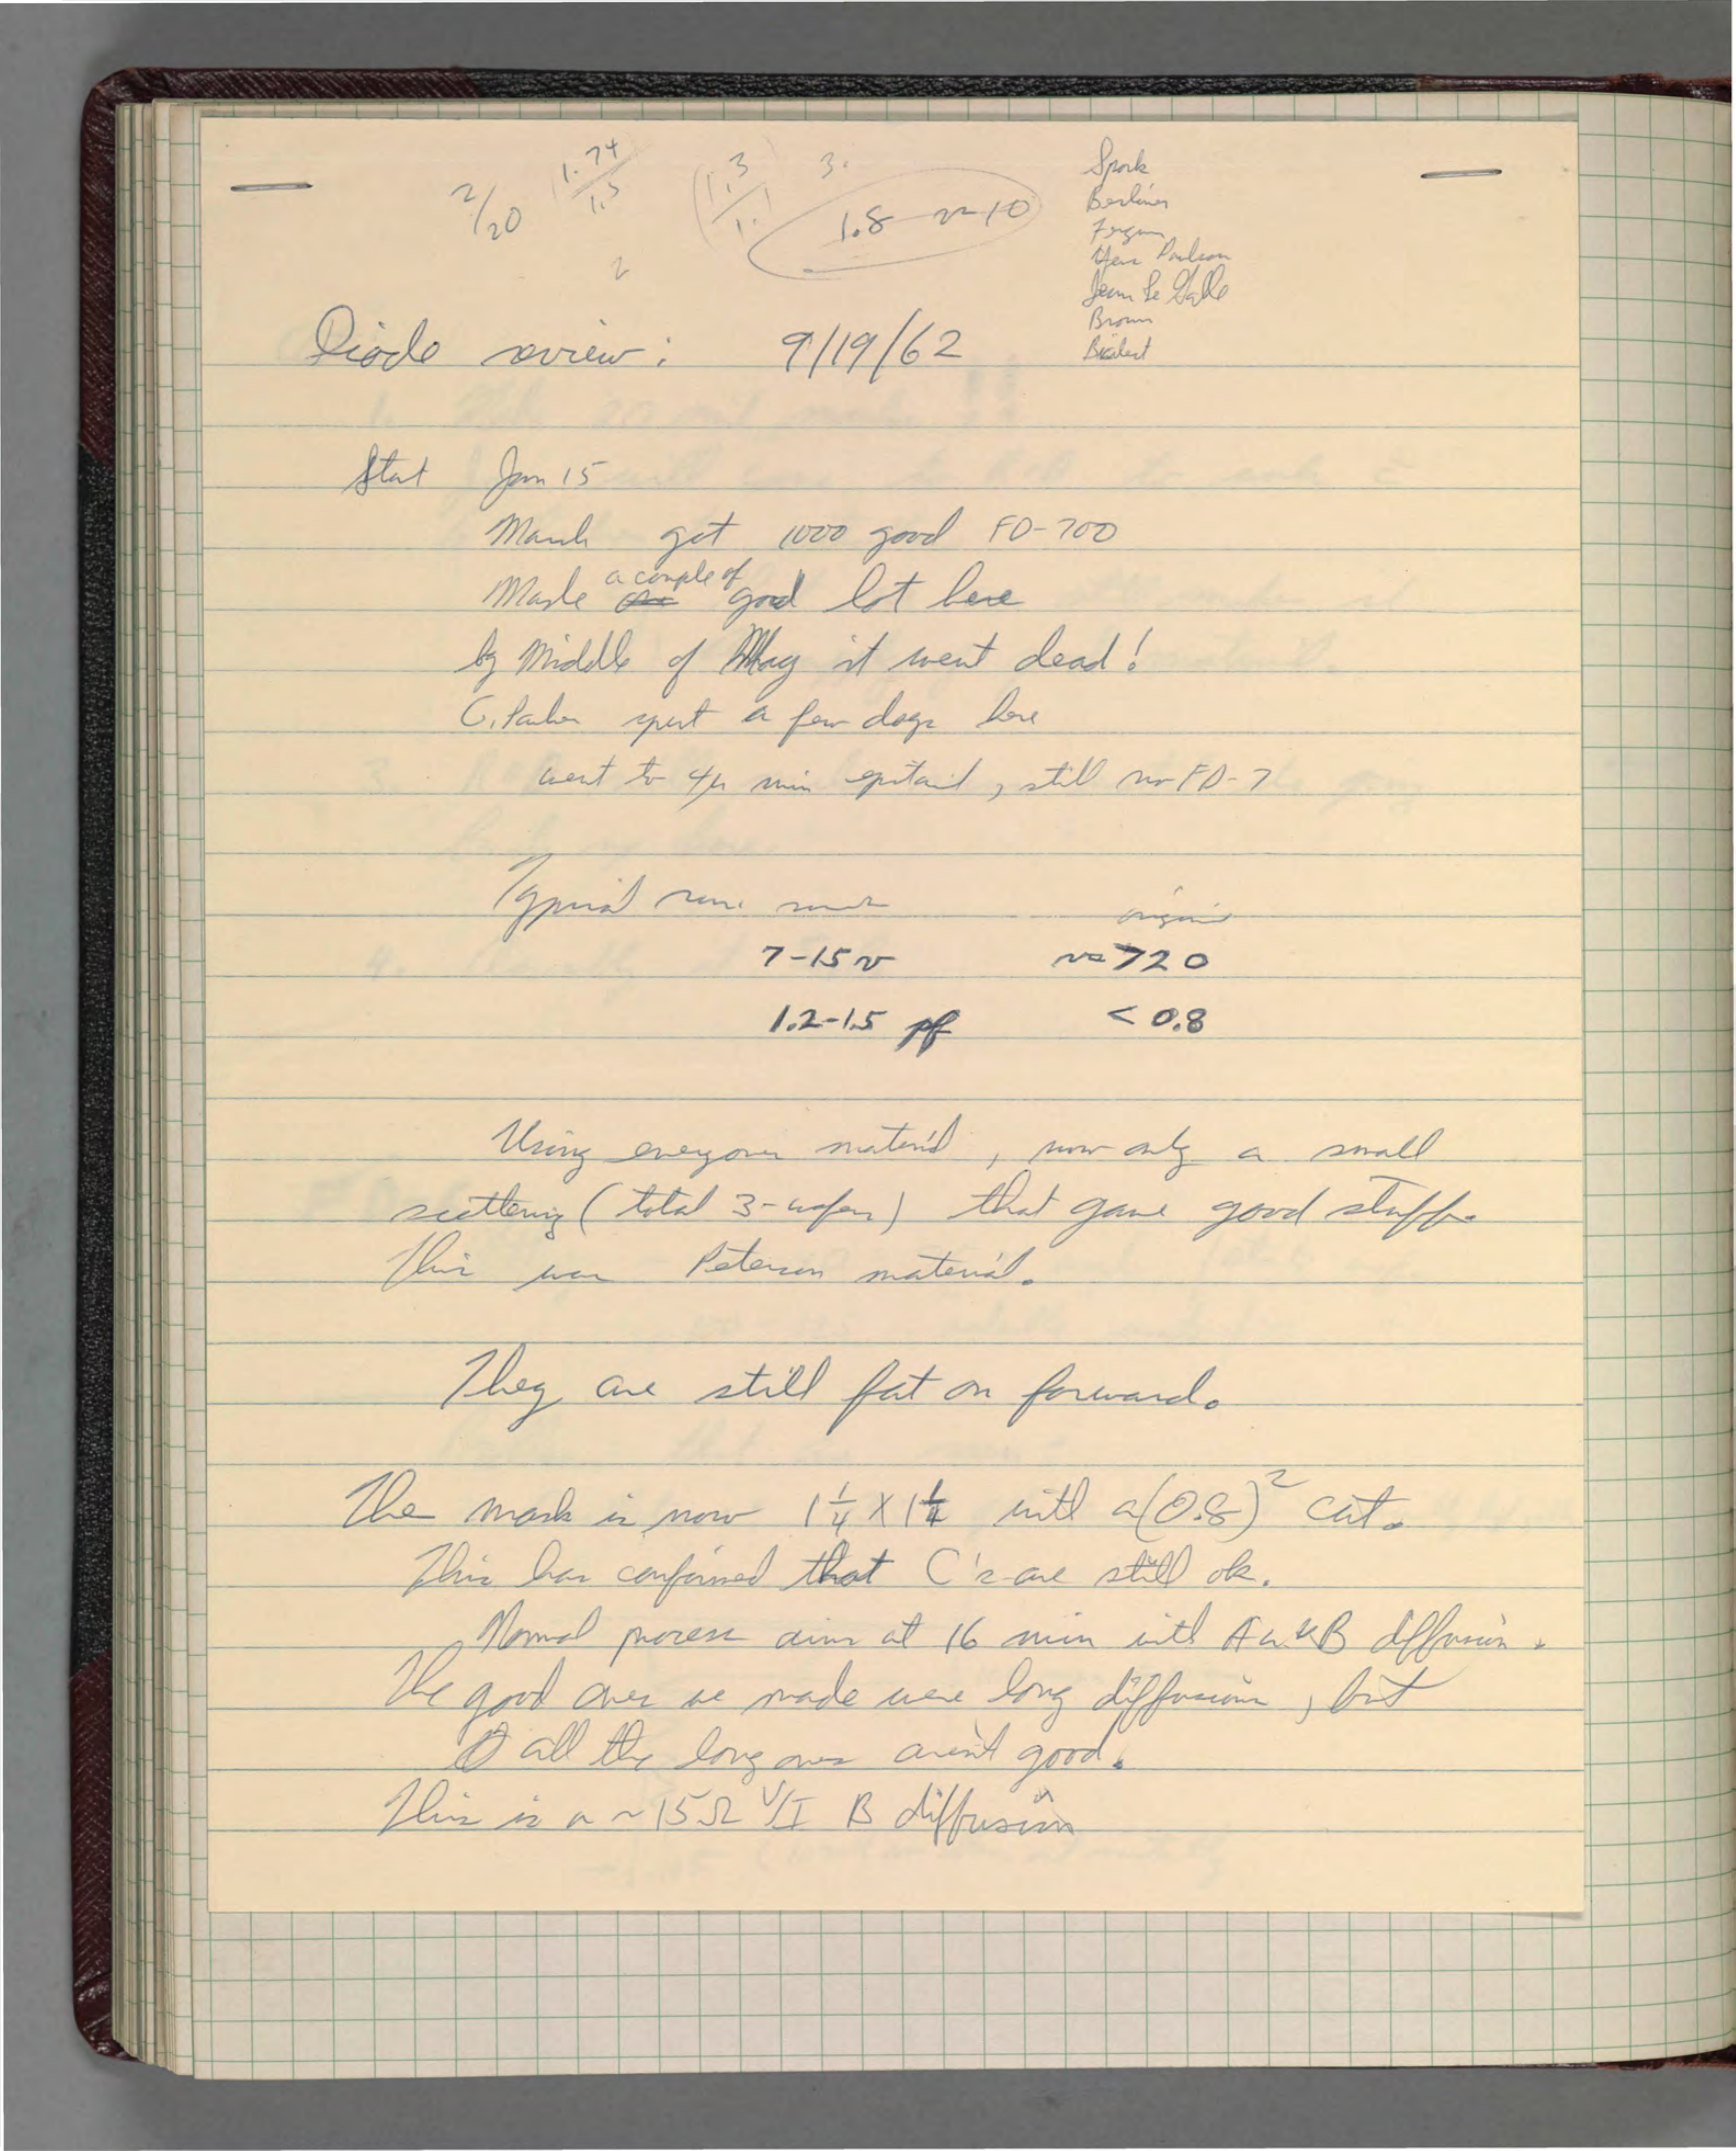 2/20
1.74
1.5
1.3
1.1
3.
1.8 10
2
Spork
Berliner
Ferguson
Paulson
Jean Le
Brown
Diode review: 9/19/62
Start Jan 15
March got 1000 good FD-700
Made a couple of good lot here
by Middle of May it went dead!
G. Parker spent a few days here
went to 4μ min epitaxial, still no FD-7
Typical run
7-15 v 720
1.2-1.5 pf < 0.8
Using everyones material, now only a small
scattering (total 3-wafers) that gave good stuff.
This was Peterson material.
They are still fat on forward.
The mask is now 1 1/4 X 1 1/4 with a (0.8)² cut.
This has confirmed that C's are still ok.
Normal process aims at 16 min with Au & B diffusion.
The good ones we made were long diffusions, but
all the long ones aren't good.
This is a ~15Ω V/I B diffusion